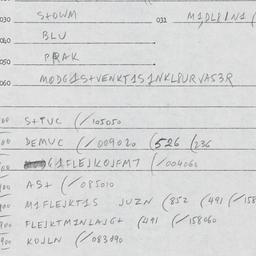 030 S+OWM 031 M1DL81N1 (
040 BLU
050 PRAK
060 MODG1S+VENKT1S1NKL8URVA53R
00 S+TUC (/105050
00 DEMUC (/009020 (526 (236
00 G1FLEJKOJFM7 (/004060
900 AS+ (/085010
900 M1FLEJKT1S JUZN (852 (491 (/158
900 FLEJKTM1NLAJG+ (491 (/158060
900 KOJLN (/083090